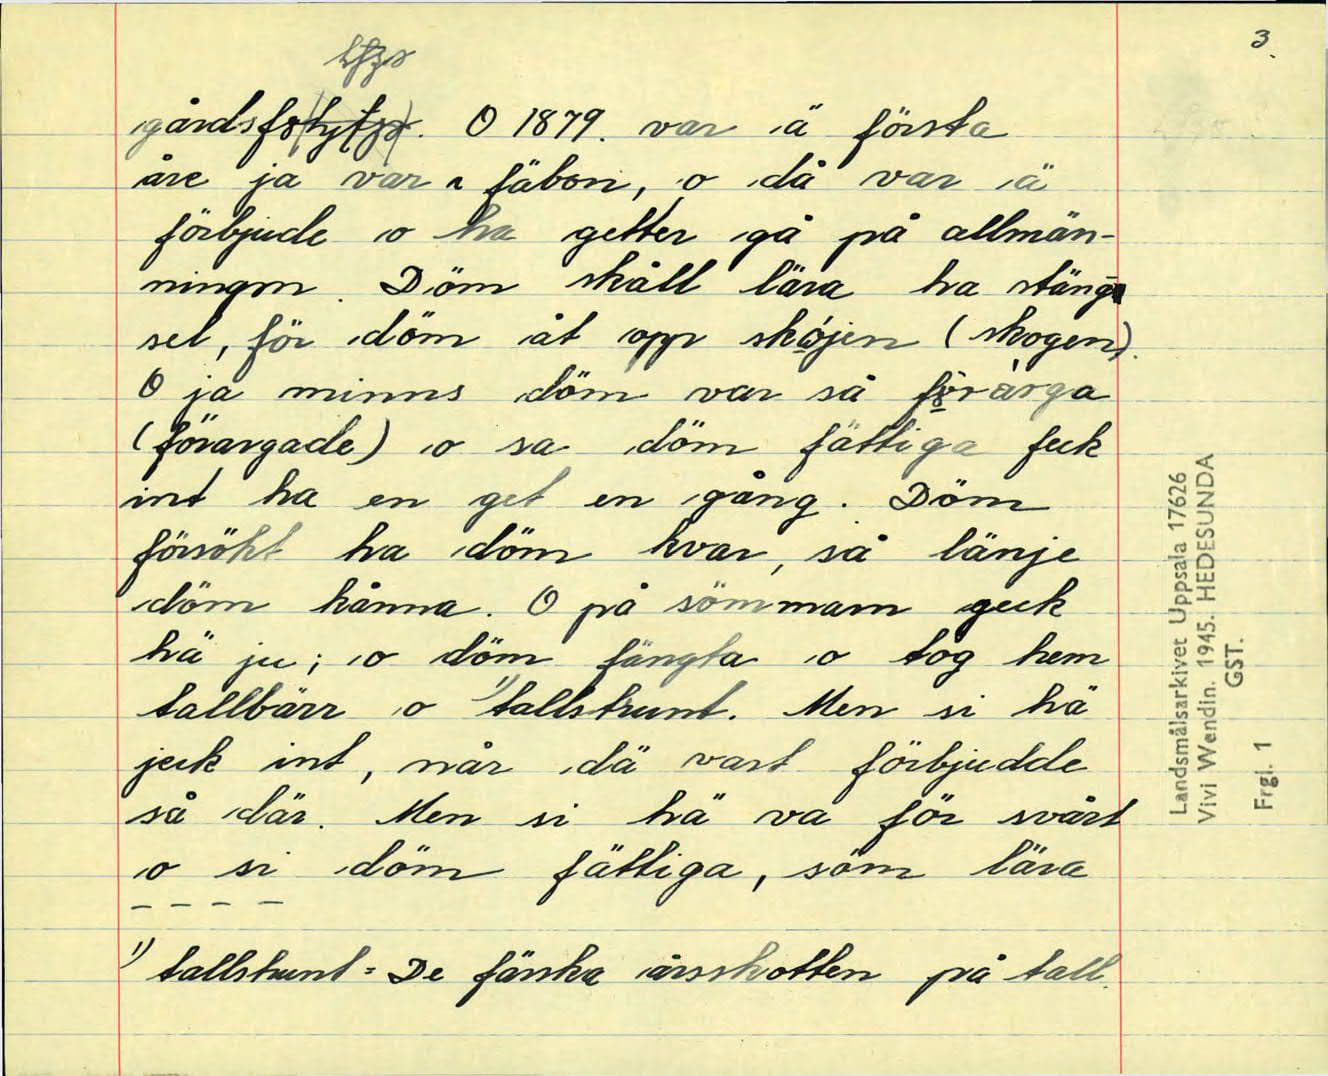 3.
gårdsfo. O 1879. var ä första
åre ja var i fäbon, o då var ä
förbjude o ha getter gå på allmän-
ningen. Döm skåll lära ha stäng-
sel, för döm åt opp skøjen (skogen).
O ja minns döm var så förarga
(förargade) o sa döm fättiga feck
int ha en get en gång. Döm
försökt ha döm kvar, så länje
döm kånna. O på sömmarn geck
hä ju; o döm fängta o tog hem
tallbärr o ¹⁾tallstrunt. Men si hä
jeck int, når dä vart förbjudde
så där. Men si hä va för svårt
o si döm fättiga, söm lära
- - - -
¹⁾ tallstrunt = De färska årsskotten på tall.
Landsmålsarkivet Uppsala 17626
Vivi Wendin. 1945. HEDESUNDA
GST.
Frgl. 1